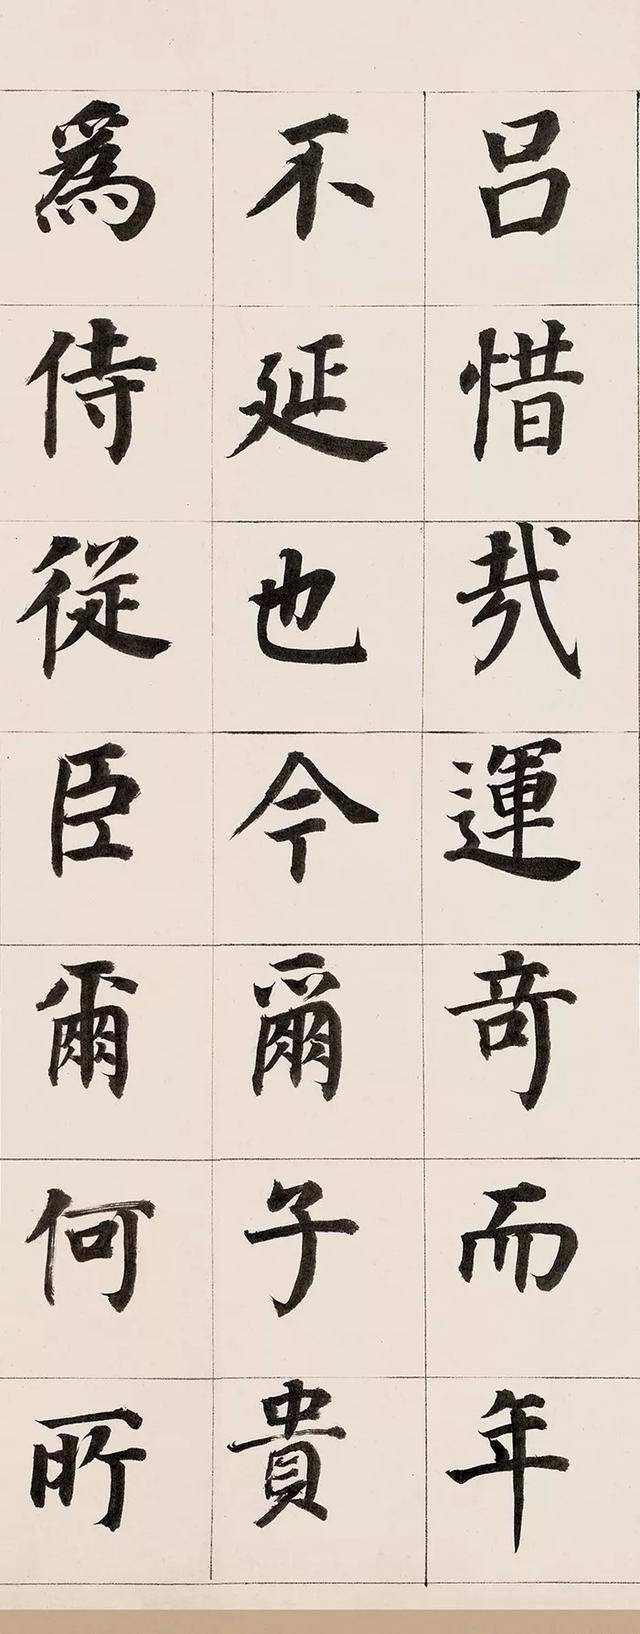 呂惜哉運奇而年
不延也今爾子貴
爲侍從臣爾何所